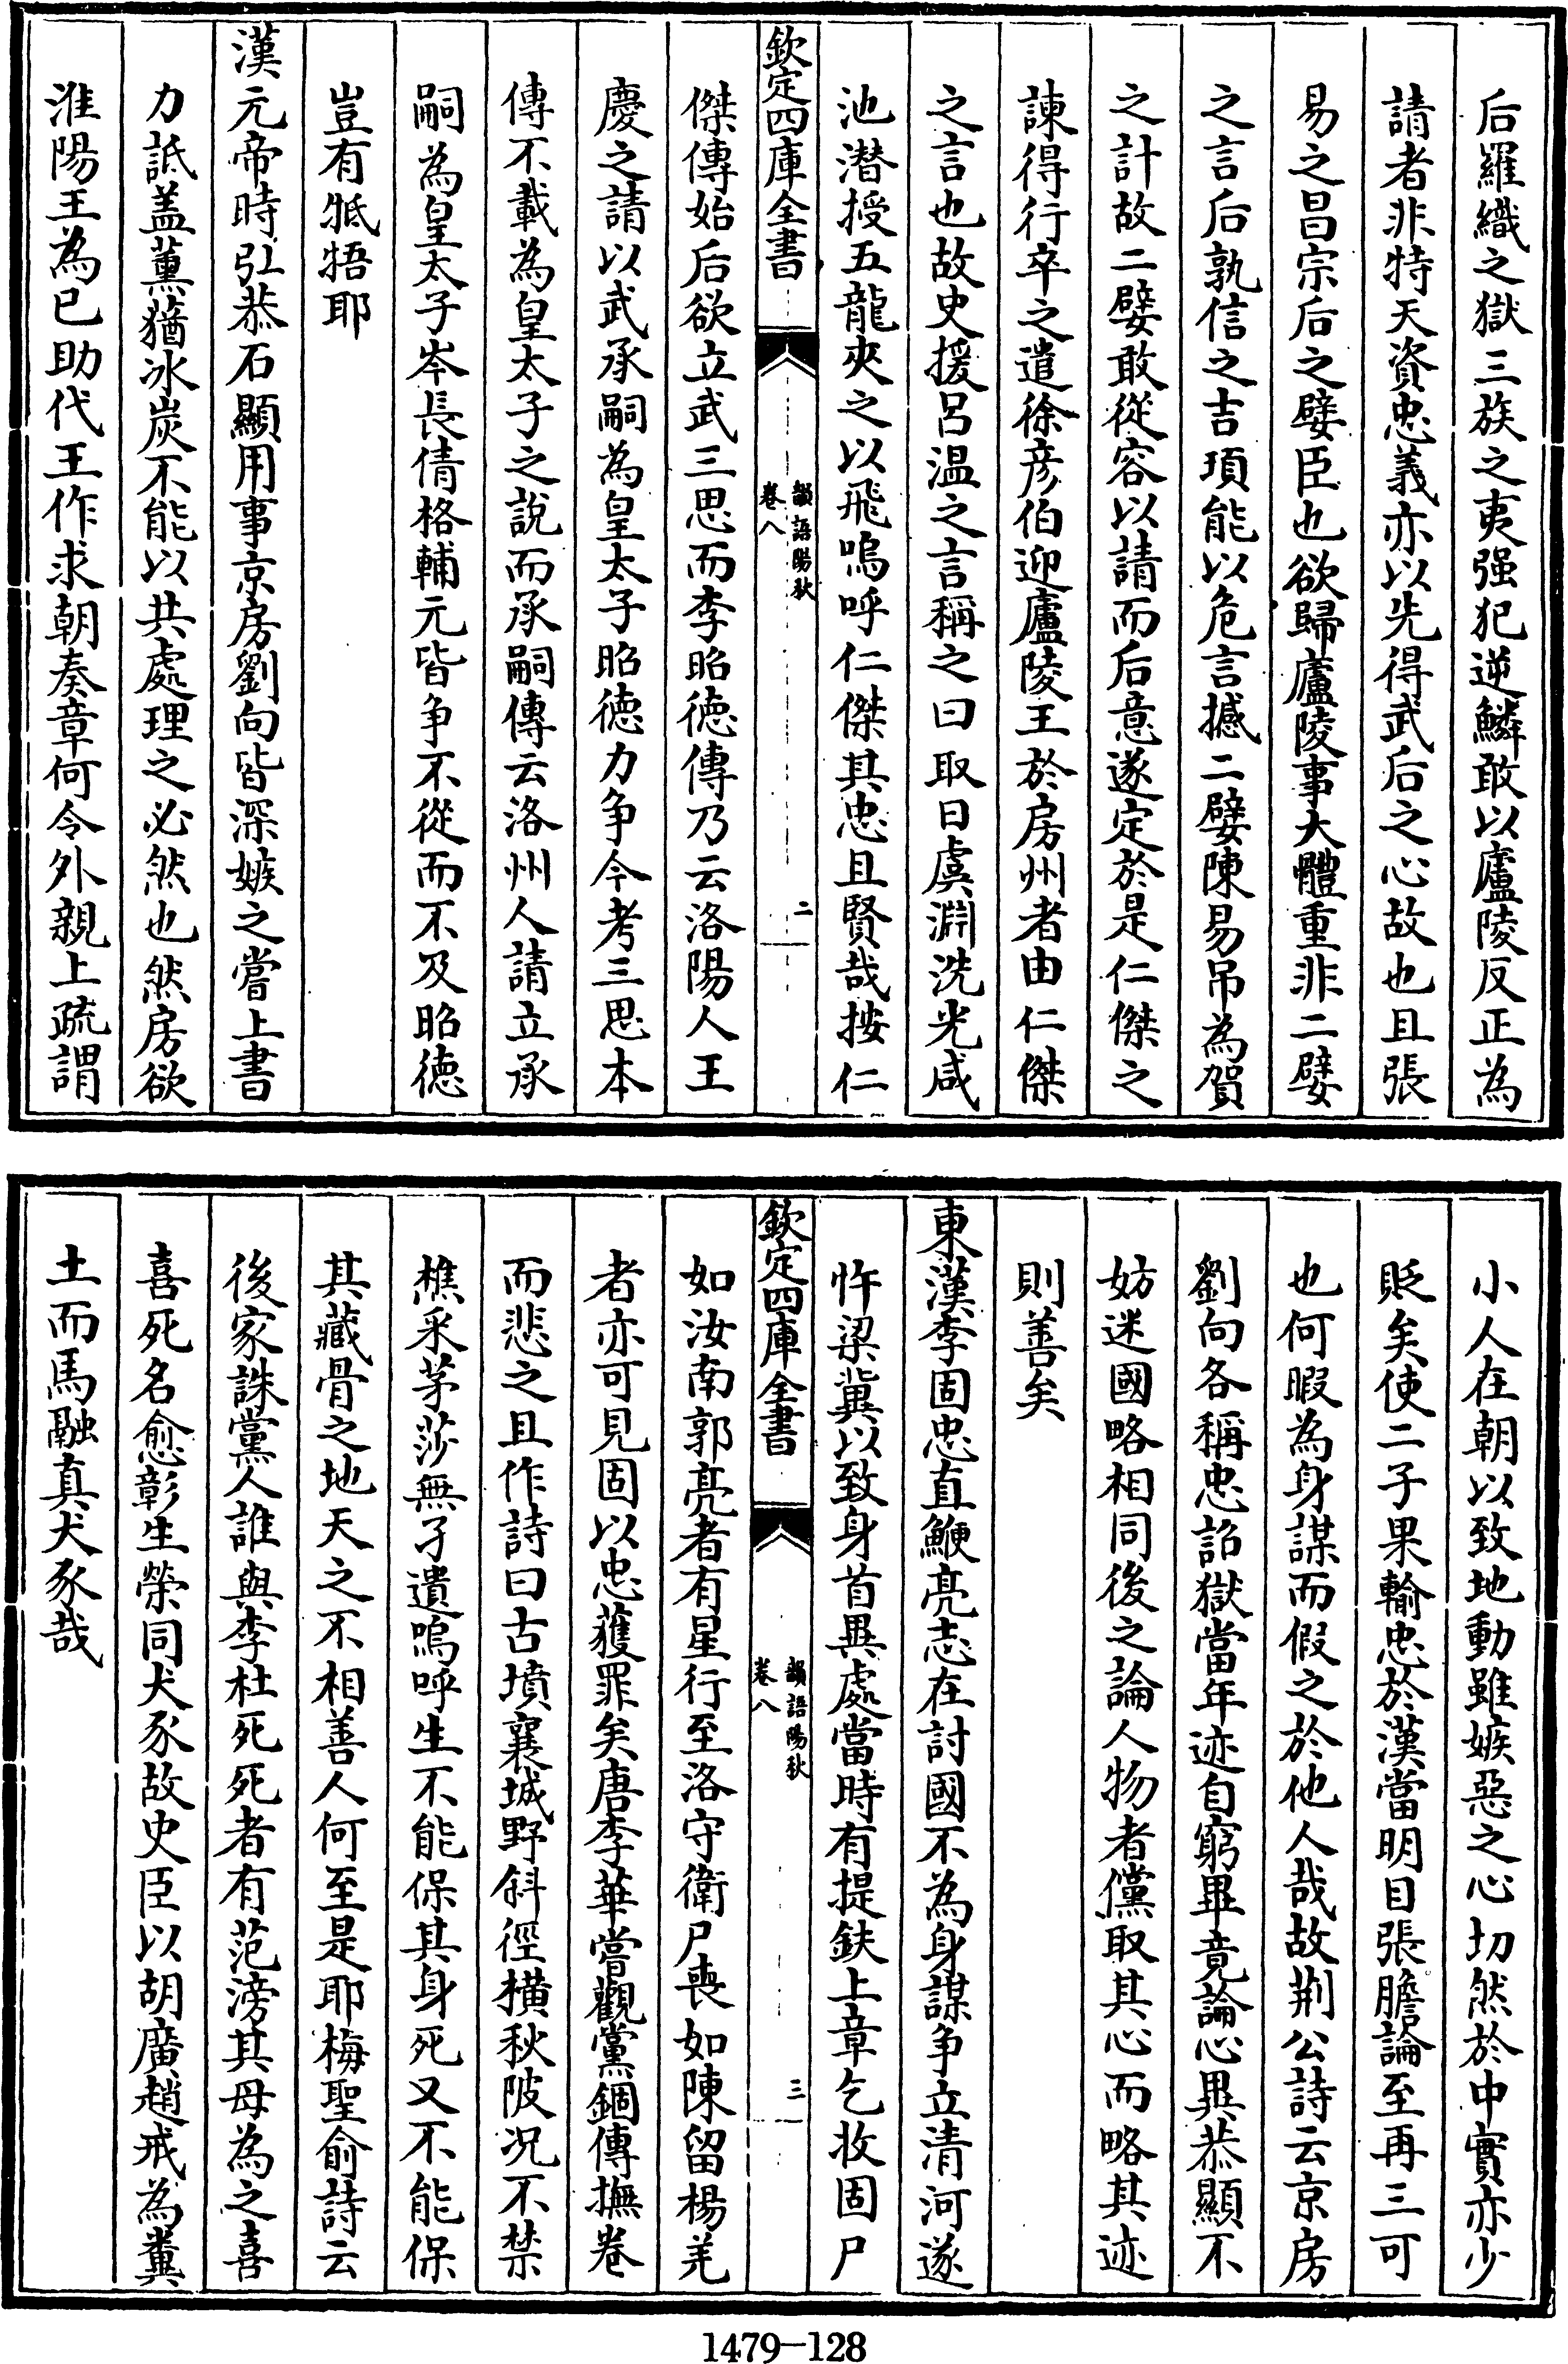 后羅織之獄三族之夷强犯逆鱗敢以廬陵反正為
請者非特天資忠義亦以先得武后之心故也且張
易之昌宗后之嬖臣也欲歸廬陵事大體重非二嬖
之言后孰信之吉頊能以危言撼二嬖陳易吊為賀
之計故二嬖敢從容以請而后意遂定於是仁傑之
諫得行卒之遣徐彦伯迎廬陵王於房州者由仁傑
之言也故史援呂温之言稱之曰取日虞淵洗光咸
池潛授五龍夾之以飛嗚呼仁傑其忠且賢哉按仁
欽定四庫全書
韻語陽秋
卷八
二
傑傳始后欲立武三思而李昭徳傳乃云洛陽人王
慶之請以武承嗣為皇太子昭徳力争今考三思本
傳不載為皇太子之說而承嗣傳云洛州人請立承
嗣為皇太子岑長倩格輔元皆争不從而不及昭徳
豈有牴牾耶
漢元帝時引恭石顯用事京房劉向皆深嫉之嘗上書
力詆盖薰蕕冰炭不能以共處理之必然也然房欲
淮陽王為已助代王作求朝奏章何令外親上疏謂
小人在朝以致地動雖嫉惡之心切然於中實亦少
貶矣使二子果輸忠於漢當明目張膽論至再三可
也何暇為身謀而假之於他人哉故荆公詩云京房
劉向各稱忠詔獄當年迹自窮畢竟論心異恭顯不
妨迷國略相同後之論人物者儻取其心而略其迹
則善矣
東漢李固忠直鯁亮志在討國不為身謀争立清河遂
忤梁冀以致身首異處當時有提鈇上章乞收固尸
欽定四庫全書
韻語陽秋
卷八
三
如汝南郭亮者有星行至洛守衛尸喪如陳留楊羌
者亦可見固以忠獲罪矣唐李華嘗觀黨錮傳撫卷
而悲之且作詩曰古墳襄城野斜徑横秋陂况不禁
樵采茅莎無孑遺嗚呼生不能保其身死又不能保
其藏骨之地天之不相善人何至是耶梅聖俞詩云
後家誅黨人誰與李杜死死者有范滂其母為之喜
喜死名愈彰生榮同犬豕故史臣以胡廣趙戒為糞
土而馬融真犬豕哉
1479-128